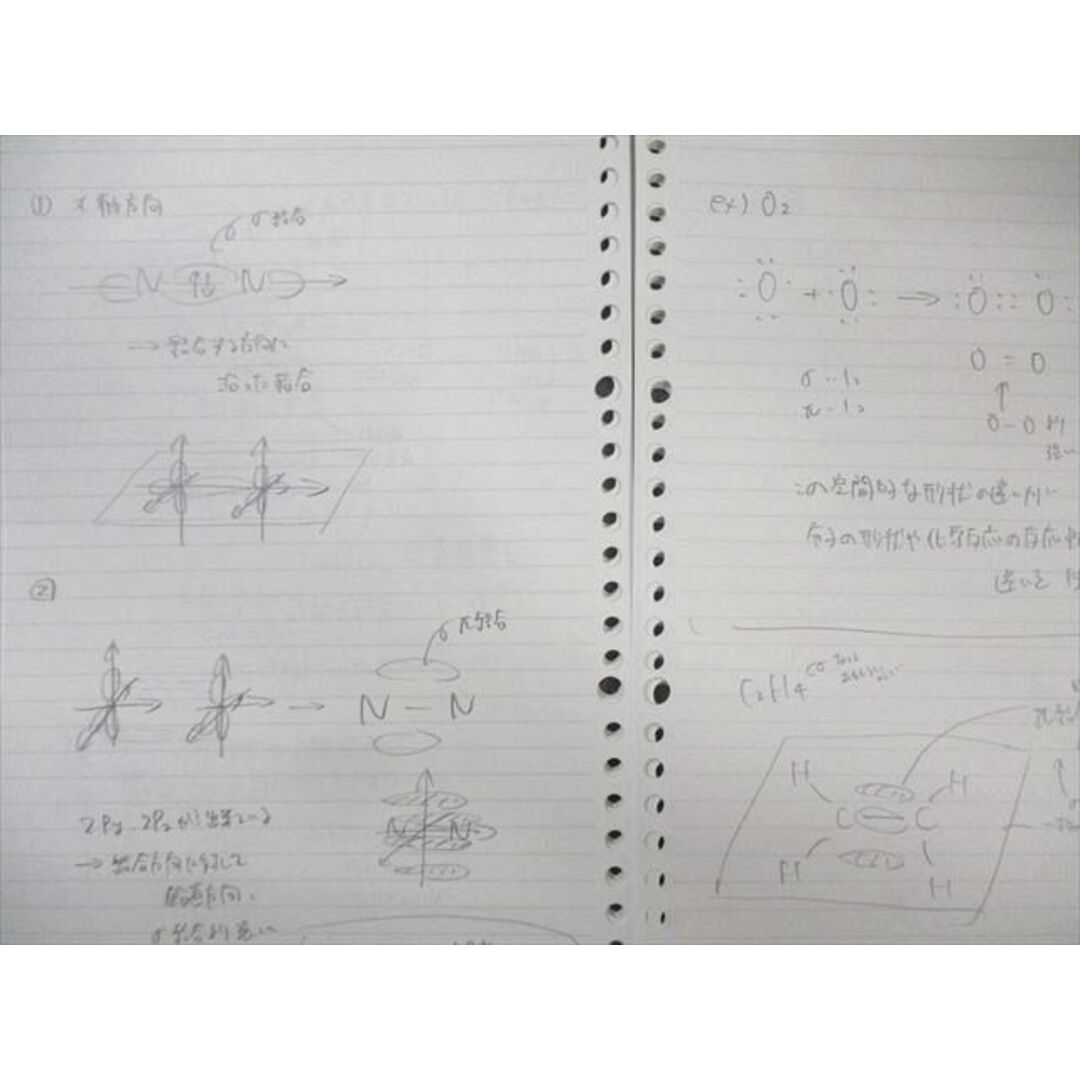 ① x軸方向
σ結合
N ↑↓ N
→ 結合する方向に
沿った結合
②
π結合
N − N
2Py、2Pzが
→ 結合方向に対して
垂直方向、
σ結合より弱い
N N
ex) O2
:O: + :O: → :O::O:
O = O
σ…1コ
π…1コ
↑
O−O より
強い
この空間的な形状の違いが
分子の形状や化学反応の反応性
違いを
C2H4
H H
C = C
H H